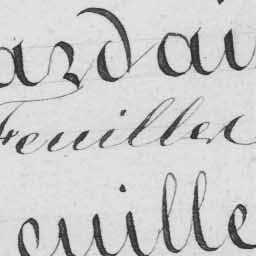 ardai
Feuillet
euille